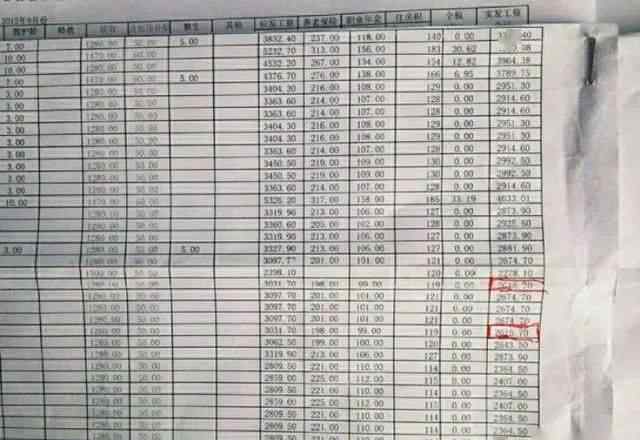 2015年9月份
教护龄 特教 其他 应发工资 养老保险 职业年金 住房积 个税 实发工资
7.00 1280.00 50.00 5.00 3832.40 237.00 118.00 140 0.00
10.00 1470.00 50.00 5232.70 313.00 156.00 183 20.62
10.00 1470.00 50.00 4532.20 267.00 134.00 154 12.82 3964.38
7.00 50.00 5.00 4376.70 276.00 138.00 166 6.95 3789.75
3.00 1280.00 50.00 3404.30 216.00 108.00 129 0.00 2951.30
3.00 1280.00 50.00 3363.60 214.00 107.00 128 0.00 2914.60
3.00 1280.00 50.00 3363.60 214.00 107.00 128 0.00 2914.60
3.00 1280.00 50.00 3404.30 216.00 108.00 129 0.00 2951.30
3.00 1280.00 50.00 3404.30 216.00 108.00 129 0.00 2951.30
3.00 1280.00 50.00 3363.60 214.00 107.00 128 0.00 2914.60
3.00 1280.00 50.00 3450.50 219.00 109.00 130 0.00 2992.50
3.00 1280.00 50.00 3450.50 219.00 109.00 130 0.00 2992.50
3.00 1280.00 50.00 3363.60 214.00 107.00 128 0.00 2914.60
10.00 1470.00 50.00 5326.20 317.00 158.00 185 33.19 4633.01
1280.00 50.00 3319.90 213.00 106.00 127 0.00 2873.90
1280.00 50.00 3360.60 205.00 102.00 128 0.00 2925.60
1280.00 50.00 3319.90 213.00 106.00 127 0.00 2873.90
3.00 1280.00 50.00 5.00 3327.90 213.00 106.00 127 0.00 2881.90
1280.00 50.00 3097.70 201.00 101.00 121 0.00 2674.70
50.00 2398.10 120 0.00 2278.10
1280.00 50.00 3031.70 198.00 99.00 119 0.00
1280.00 50.00 3097.70 201.00 101.00 121 0.00 2674.70
1280.00 50.00 3097.70 201.00 101.00 121 0.00 2674.70
1280.00 50.00 3097.70 201.00 101.00 121 0.00 2674.70
1280.00 50.00 3031.70 198.00 99.00 119 0.00
1280.00 50.00 3062.50 199.00 100.00 120 0.00 2643.50
1280.00 50.00 3319.90 213.00 106.00 127 0.00 2873.90
1280.00 50.00 2809.50 221.00 110.00 114 0.00 2364.50
1280.00 50.00 2859.00 225.00 112.00 115 0.00 2407.00
1280.00 50.00 2809.50 221.00 110.00 114 0.00 2364.50
1280.00 50.00 2859.00 225.00 112.00 115 0.00 2407.00
1280.00 50.00 2809.50 221.00 110.00 114 0.00 2364.50
50.00 2809.50 221.00 110.00 114 0.00 2364.50